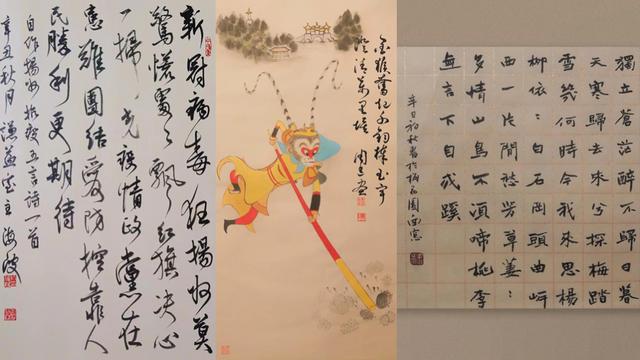 新冠病毒狂揚州莫
驚慌處處飄紅旗决心
一掃光疫情政黨在
患難團結愛防控靠人
民勝利更期待
自作揚州抗疫五言詩一首
辛丑秋月謙益堂主海波
金猴奮起千鈞棒玉宇
澄清萬里埃
獨立蒼茫醉不歸日暮
天寒歸去來兮探梅踏
雪幾何時今我來思楊
柳依:白石岡頭曲岸
西一片閒愁芳草萋:
多情山鳥不須啼桃李
無言下自成蹊
辛丑初秋書於